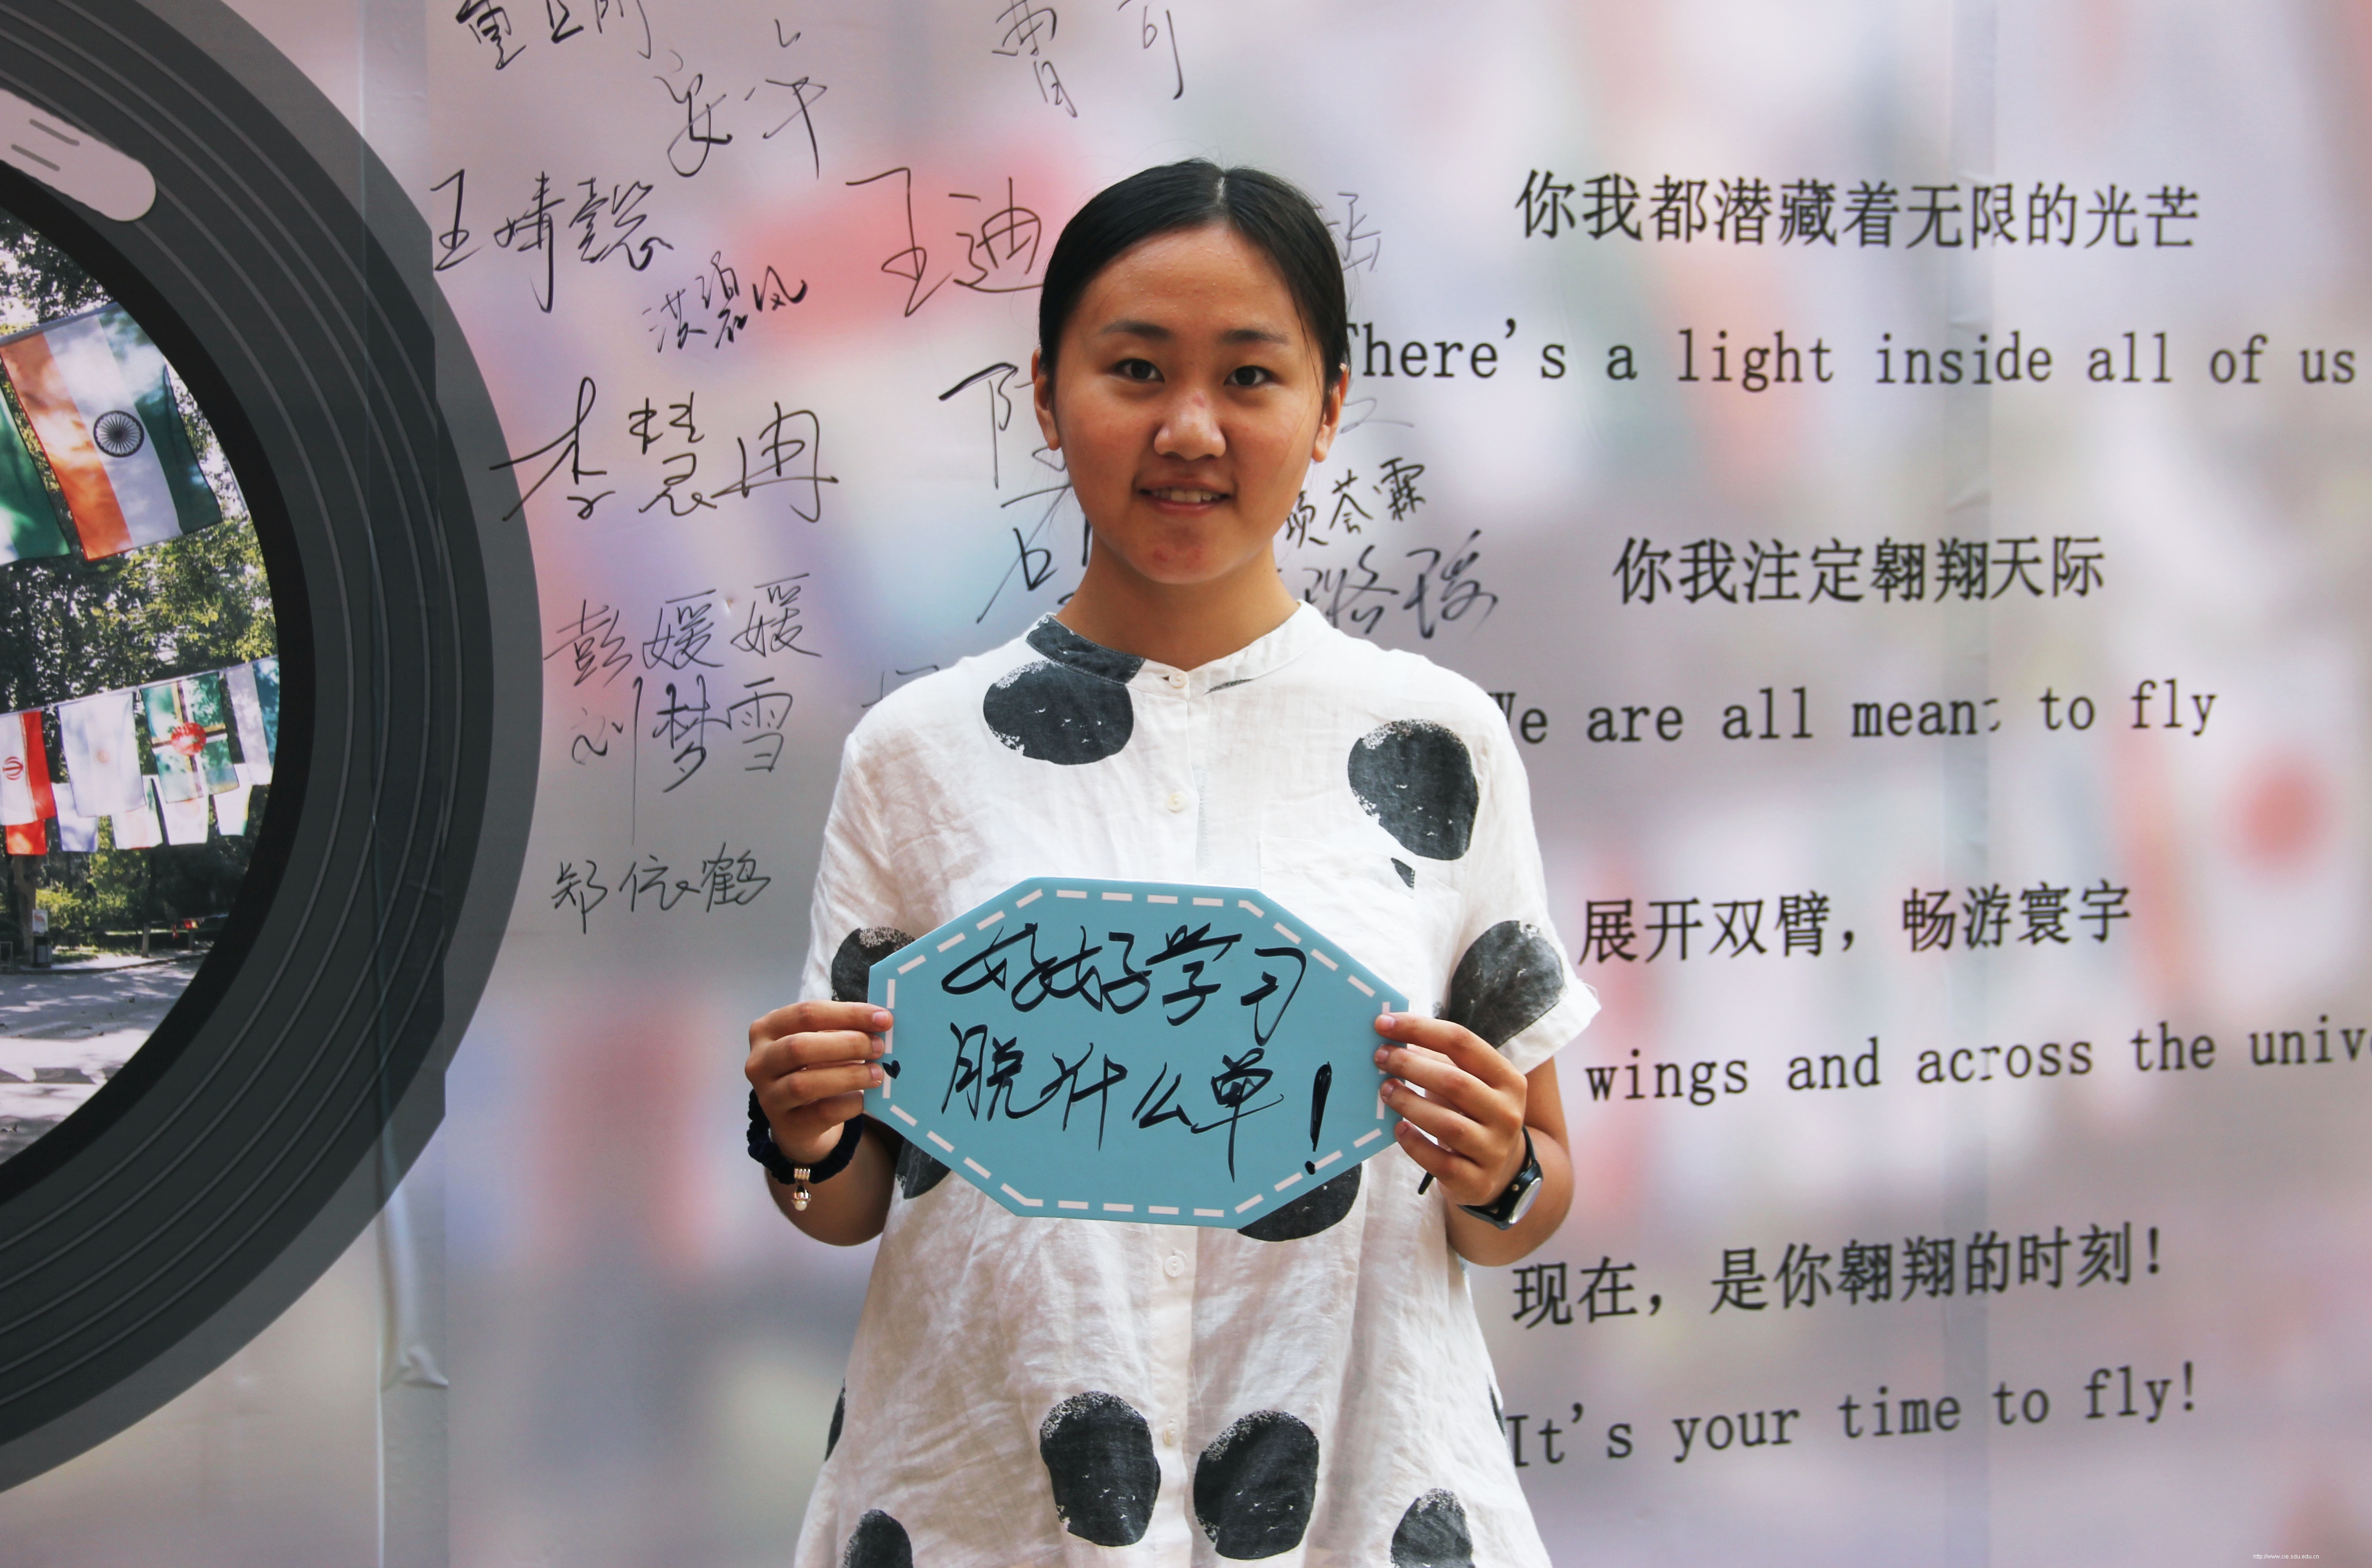 安宁
王婧懿
王迪
李慧冉
彭媛媛
刘梦雪
郑依鹤
好好学习
脱什么单!
你我都潜藏着无限的光芒
There's a light inside all of us
你我注定翱翔天际
We are all meant to fly
展开双臂，畅游寰宇
wings and across the unive
现在，是你翱翔的时刻!
It's your time to fly!
http://www.cie.sdu.edu.cn